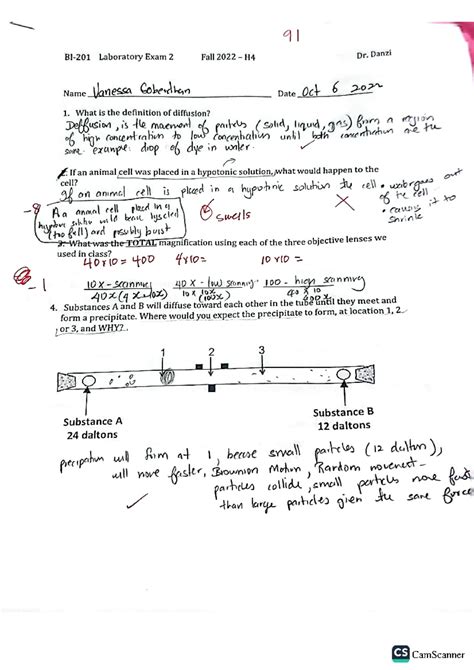 91
BI-201 Laboratory Exam 2 Fall 2022 – H4 Dr. Danzi
Name Vanessa Date Oct 6 2022
1. What is the definition of diffusion?
Deffusion, is the macement of particles (solid, liquid, gas) from a region
of high concentration to low concentration until both concentration are the
same. example: drop of dye in water.
2. If an animal cell was placed in a hypotonic solution, what would happen to the
cell?
If an animal cell is placed in a hypotonic solution the cell • undergoes
out of te cell
• causing it to
shrink
-8
Aa animal cell placed in a
hypotonic will
(too full) and possibly burst
swells
3. What was the TOTAL magnification using each of the three objective lenses we
used in class?
40x10 = 400 4x10= 10x10 =
-1
10x - scanning 40x - low scanning 100 - high scanning
40x (4x10) 10x10 (100x) 40x10 400x
4. Substances A and B will diffuse toward each other in the tube until they meet and
form a precipitate. Where would you expect the precipitate to form, at location 1, 2
or 3, and WHY?
1 2 3
Substance A
24 daltons
Substance B
12 daltons
precipitation will form at 1, becase small particles (12 dalton),
will move faster, Brownion Motion, Random movement -
particles collide, small particles move fast
than large particles given the same force
CS CamScanner